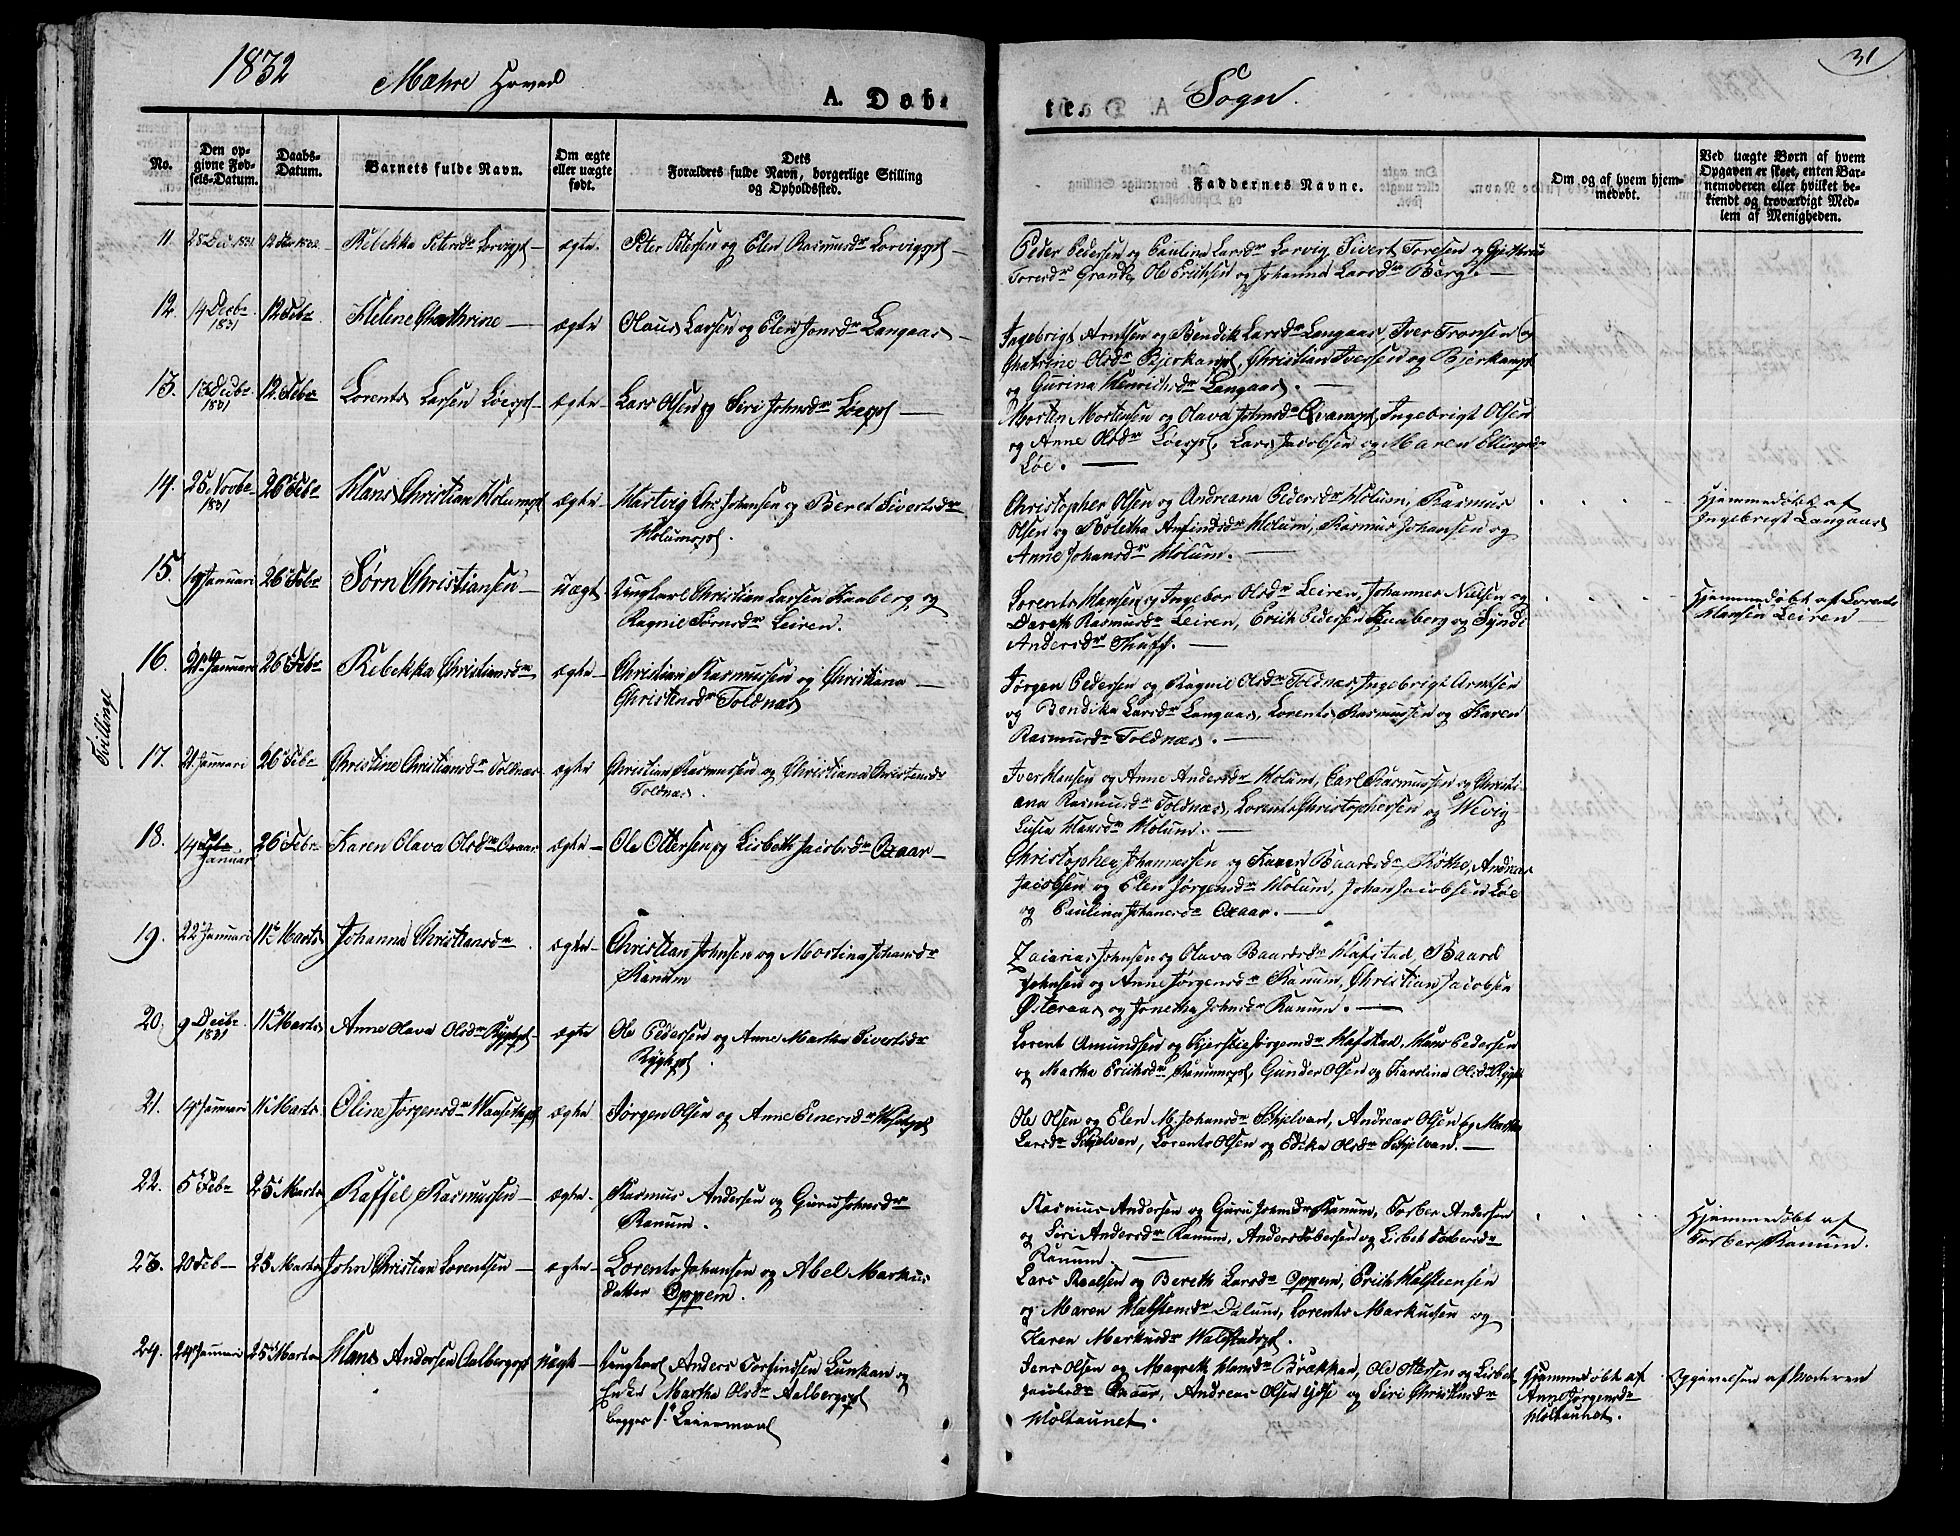 1832 Mæhre Hoved Sogn. 31
A. Døbte.
No.
Den opgivne Fødsels-Datum.
Daabs-Datum.
Barnets fulde Navn.
Om ægte eller uægte født.
Dets Forældres fulde Navn, borgerlige Stilling og Opholdssted.
Faddernes Navne.
Om og af hvem hjemmedøbt.
Ved uægte Børn af hvem Opgaven er skeet, enten Barnemoderen eller hvilket bekiendt og troværdigt Medlem af Menigheden.
11. 25 Dec 1831 Rebekka Petersdr ægte Peter Petersen og Elen Rasmusdr
Peder Pedersen og Paulina Larsdr Lorvig, Sivert Toresen og
Toresdr Grande, Ole Erichsen og Johanna Larsdr Berg.
12. 14 Decbr 1831 12 Febr Helene Chathrine ægte Olaus Larsen og Elen Jonsdr Langaas
Ingebrigt Arntsen og Bendik Larsdr Langaas, Iver Tronsen og
Chatrine Olsdr Bjerkanpl, Christian Iversen og Bjerkanpl
og Gurina Henrichsdr Langaas.
13. 13 Decbr 1831 12 Febr Lorents Larsen Løepl ægte Lars Olsen og Siri Johnsdr Løepl
Morten Mortensen og Olava Johnsdr Qvampl, Ingebrigt Olsen
og Anne Olsdr Løepl, Lars Jacobsen og Maren Ellingsdr
Løe.
14. 25 Novbr 1831 26 Febr Hans Christian Holumspl ægte Hartvig Chr. Johansen og Beret Sivertsdr
Holumspl.
Christopher Olsen og Andreana Pedersdr Holum, Rasmus
Olsen og Boletha Anfindsdr Holum, Rasmus Johansen og
Anne Johansdr Holum.
Hjemmedøbt af
Ingebrigt Langaas
15. 19 Januari 26 Febr Sørn Christiansen uægt. Ungkarl Christian Larsen Kaaberg og
Ragnil Sørnsdr Leiren.
Lorents Hansen og Ingebor Olsdr Leiren, Johannes Nielsen og
Dareth Rasmusdr Leiren, Erich Pedersen Kaaberg og Synni
Andersdr Thuff.
Hjemmedøbt af Lorents
Hansen Leiren
Tvillinge
16. 21 Januari 26 Febr Rebekka Christiansdr ægte Christian Rasmussen og Christiana
Christensdr Toldnas
Jørgen Pedersen og Ragnil Olsdr Toldnas, Ingebrigt Arntsen
og Bendika Larsdr Langaas, Lorents Rasmussen og Karen
Rasmusdr Toldnas.
17. 21 Januari 26 Febr Christine Christiansdr Toldnas ægte Christian Rasmussen og Christiana Christensdr
Toldnas.
Iver Hansen og Anne Andersdr Holum, Carl Rasmussen og Christi-
ana Rasmusdr Toldnas, Lorents Christophersen og
Lusia Hansdr Holum.
18. 14 Januar 26 Febr Karen Olava Olsdr Oxaar ægte Ole Ottersen og Lisbeth Jacobsdr Oxaar
Christopher Johannessen og Karen Baardsdr Røthe, Andreas
Jacobsen og Elen Jørgensdr Holum, Johan Jacobsen Løe
og Paulina Johansdr Oxaar.
19. 22 Januari 11 Marts Johanna Christiansdr ægte Christian Johnsen og Martina Johansdr
Ranum
Zacarias Johnsen og Olava Baardsdr Hafstad, Baard
Johnsen og Anne Jørgensdr Ranum, Christian Jacobsen
Østeraas og Jonetha Johnsdr Ranum.
20. 9 Decbr 1831 11 Marts Anne Olava Olsdr Ryghpl ægte Ole Pedersen og Anne Martha Sivertsdr
Ryghpl.
Lorent Amundsen og Kjerstie Jørgensdr Hafstad, Hans Pedersen
og Martha Erichsdr Ranumspl, Gunder Olsen og Karolina Olsdr Rygh
21. 14 Januari 11 Marts Oline Jørgensdr ægte Jørgen Olsen og Anne Einersdr
Ole Olsen og Elen M. Johansdr Schjelvan, Andreas Olsen og Martha
Larsdr Schjelvan, Lorents Olsen og Edika Olsdr Schjelvan.
22. 5 Febr 25 Marts Raffel Rasmussen ægte Rasmus Andersen og Guru Johnsdr
Ranum.
Rasmus Andersen og Guru Johnsdr Ranum, Torber Andersen
og Siri Andersdr Ranum, Anders Tobersen og Lisbet Torbersdr
Ranum
Hjemmedøbt af
Torber Ranum.
23. 20 Feb 25 Marts John Christian Lorentsen ægte Lorents Johansen og Abel Markus
datter Oppem.
Lars Paalsen og Bereth Larsdr Oppem, Erich Halsteensen
og Maren Halstensdr Dalum, Lorents Markusen og
Karen Markusdr Walstadpl.
24. 24 Januari 25 Marts Hans Andersen Aalbergspl uægt Ungkarl Anders Torfindsen Lunkan og
Enke Martha Olsdr Aalbergspl
begges 1te Leiermaal
Jens Olsen og Magreth Hansdr Brækken, Ole Ottersen og Lisbet
Jacobsdr Oxaar, Andreas Olsen Ydse og Siri Christensdr
Holtaunet.
Hjemmedøbt af
Anne Jørgensdr
Holtaunet.
Opgivelsen af Moderen